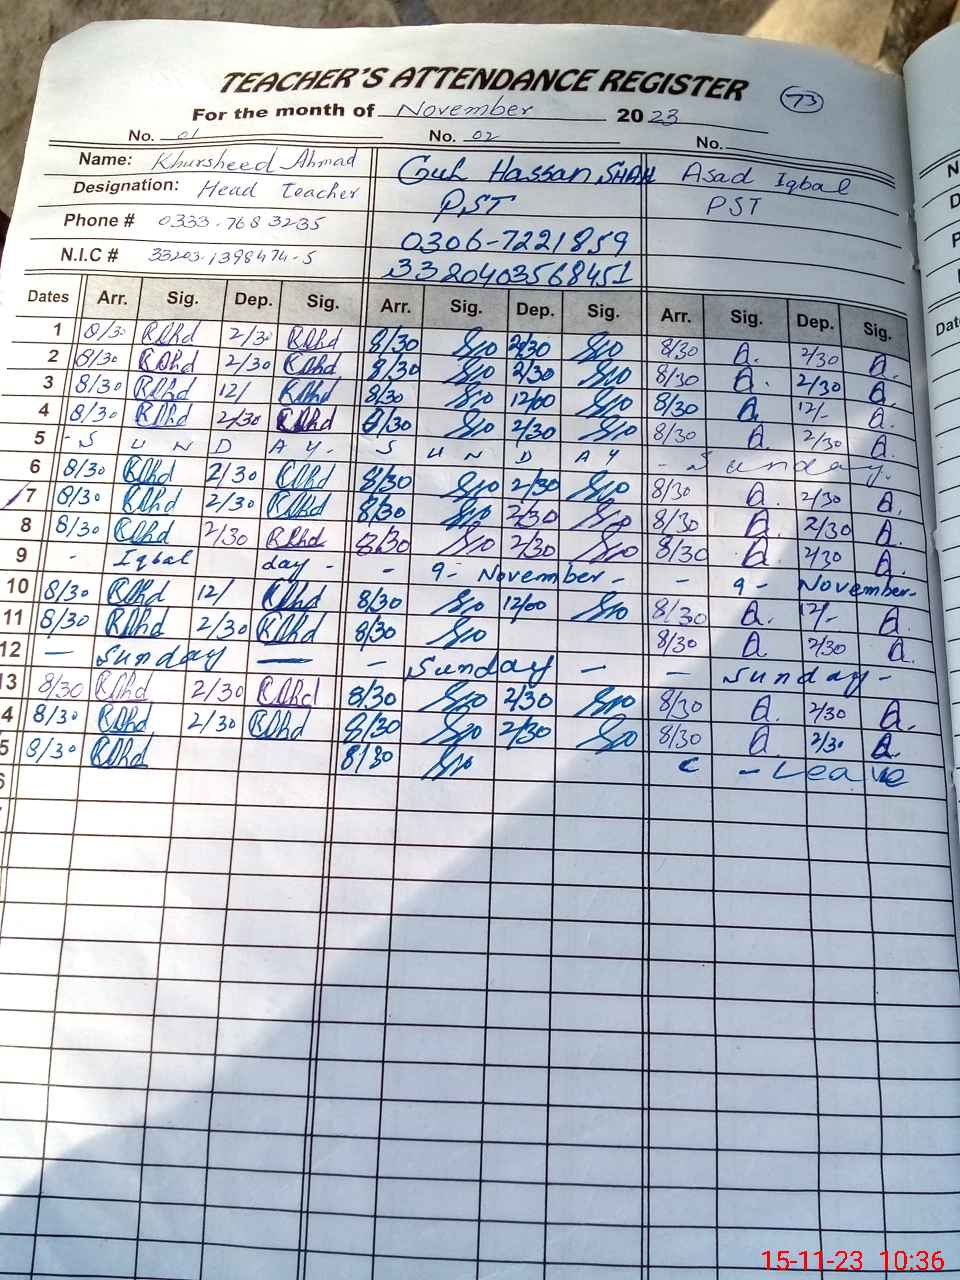 TEACHER'S ATTENDANCE REGISTER 73
For the month of November 2023
No. 01 No. 02 No.
Name: Khursheed Ahmad Gul Hassan SHAH Asad Iqbal
Designation: Head Teacher PST PST
Phone # 0333-7683235 0306-7221859
N.I.C # 33203-1398474-5 3320403568451
Dates Arr. Sig. Dep. Sig. Arr. Sig. Dep. Sig. Arr. Sig. Dep. Sig.
1 8/30 2/30 8/30 2/30 8/30 A. 2/30 A.
2 8/30 2/30 8/30 2/30 8/30 A. 2/30 A.
3 8/30 12/ 8/30 12/00 8/30 A 12/- A.
4 8/30 2/30 8/30 2/30 8/30 A. 2/30 A.
5 - S U N D A Y. S U N D A Y - Sunday.
6 8/30 2/30 8/30 2/30 8/30 A. 2/30 A.
7 8/30 2/30 8/30 2/30 8/30 A. 2/30 A.
8 8/30 2/30 8/30 2/30 8/30 A. 2/30 A.
9 - Iqbal day - - 9- November - - 9 - November-
10 8/30 12/ 8/30 12/00 8/30 A. 12/- A.
11 8/30 2/30 8/30 8/30 A. 2/30 A.
12 — Sunday — - Sunday - - Sunday -
13 8/30 2/30 8/30 2/30 8/30 A. 2/30 A.
4 8/30 2/30 8/30 2/30 8/30 A 2/30 A.
5 8/30 8/30 - Leave
6
15-11-23 10:36